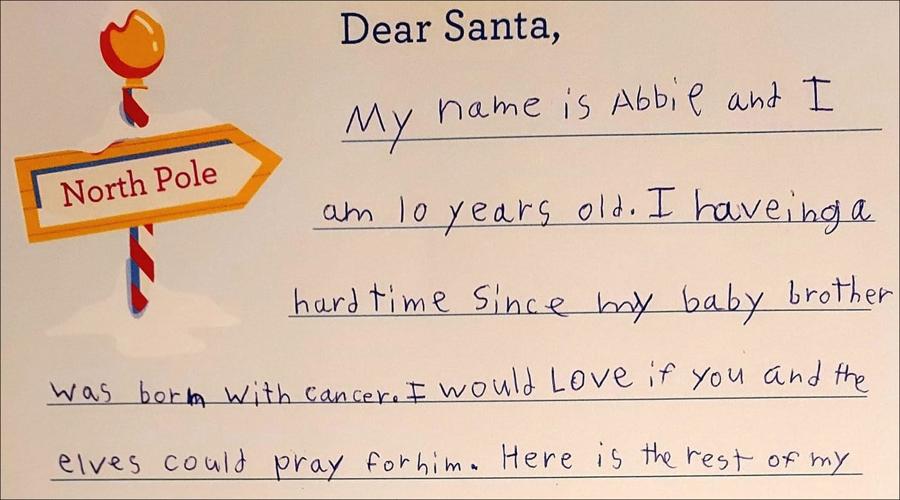 Dear Santa,
North Pole
My name is Abbie and I
am 10 years old. I haveing a
hard time since my baby brother
was born with cancer. I would Love if you and the
elves could pray for him. Here is the rest of my